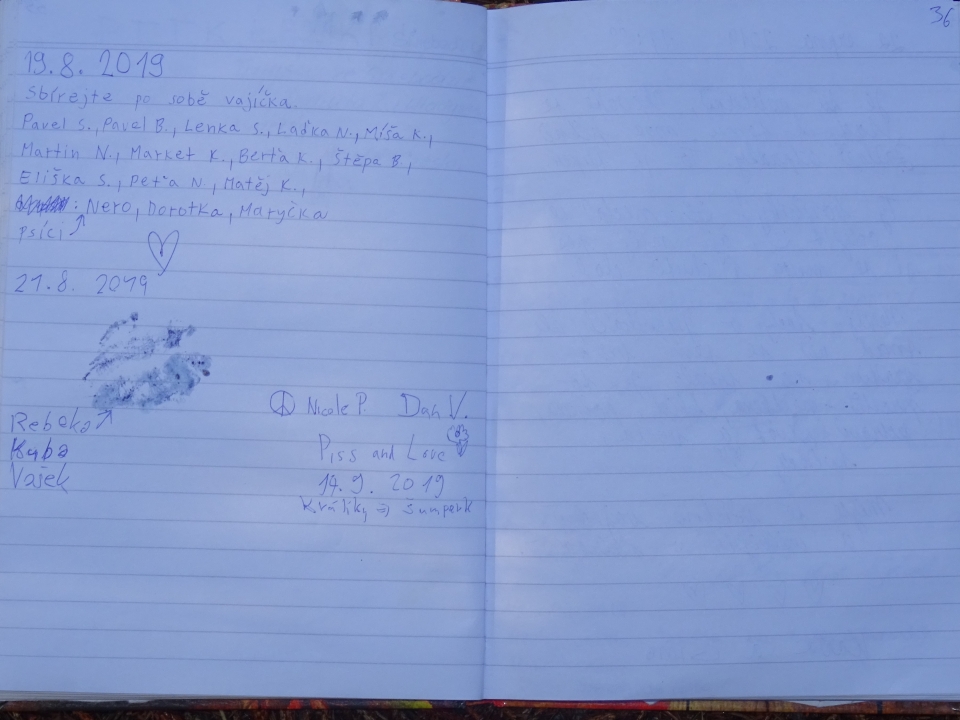 36
19.8. 2019
Sbírejte po sobě vajíčka.
Pavel S., Pavel B., Lenka S., Laďka N., Míša K.,
Martin N., Market K., Berťa K., Štěpa B.,
Eliška S., Peťa N., Matěj K.,
: Nero, Dorotka, Maryčka
psíci ↑
21.8. 2019
Rebeka ↗
Kuba
Vašek
☮ Nicole P. Dan V.
Piss and Love
14.9. 2019
Králíky ⇒ Šumperk